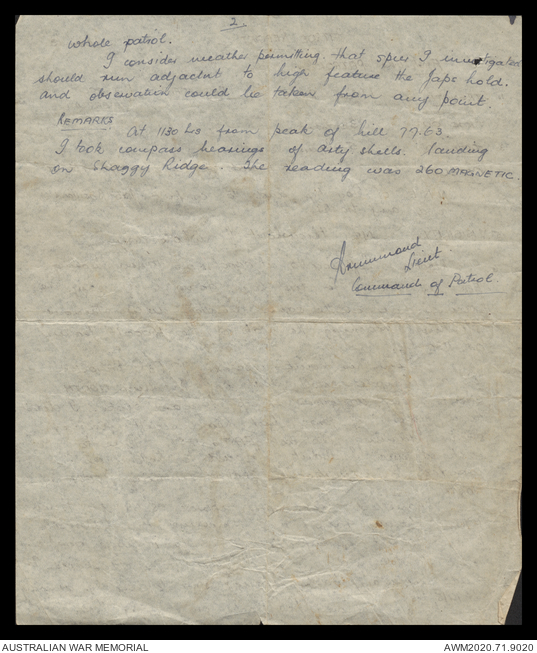 2.
whole patrol.
I consider weather permitting that spur I investigated
should run adjacent to high feature the Japs hold.
and observation could be taken from any point.
REMARKS
At 1130 hrs from peak of hill 77.63.
I took compass bearings of arty shells landing
on Shaggy Ridge. The reading was 260 MAGNETIC.
Drummond
Lieut.
Command of Patrol.
AUSTRALIAN WAR MEMORIAL
AWM2020.71.9020